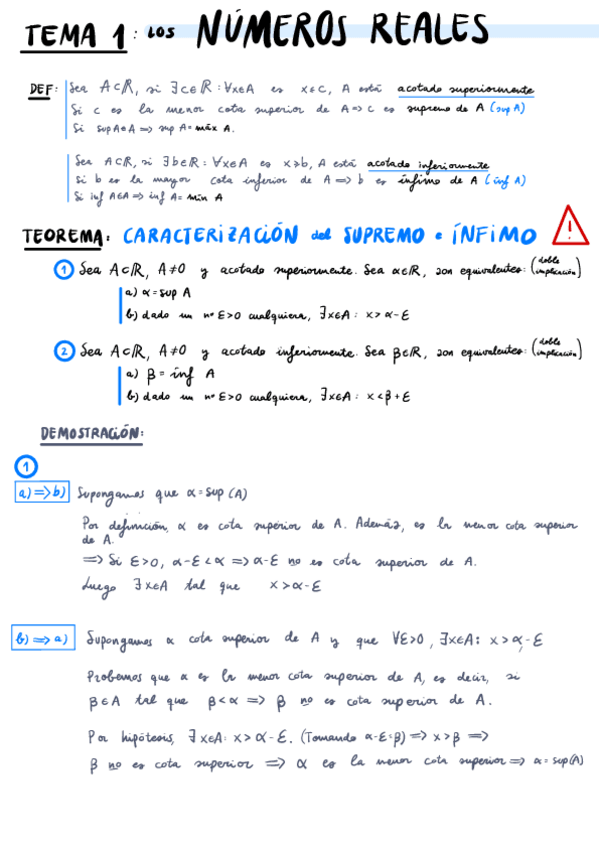 TEMA 1: LOS NÚMEROS REALES
DEF: Sea A⊂ℝ, si ∃c∈ℝ: ∀x∈A es x≤c, A está acotado superiormente
Si c es la menor cota superior de A => c es supremo de A (sup A)
Si supA∈A => sup A = máx A.
Sea A⊂ℝ, si ∃b∈ℝ: ∀x∈A es x≥b, A está acotado inferiormente
Si b es la mayor cota inferior de A => b es ínfimo de A (ínf A)
Si inf A∈A => inf A = min A
TEOREMA: CARACTERIZACIÓN del SUPREMO e ÍNFIMO
1 Sea A⊂ℝ, A≠0 y acotado superiormente. Sea α∈ℝ, son equivalentes: (doble implicación)
a) α=sup A
b) dado un nº ε>0 cualquiera, ∃x∈A: x>α-ε
2 Sea A⊂ℝ, A≠0 y acotado inferiormente. Sea β∈ℝ, son equivalentes: (doble implicación)
a) β = ínf A
b) dado un nº ε>0 cualquiera, ∃x∈A: x<β+ε
DEMOSTRACIÓN:
1
a)=>b) Supongamos que α=sup(A)
Por definición, α es cota superior de A. Además, es la menor cota superior
de A.
=> Si ε>0, α-ε<α => α-ε no es cota superior de A.
Luego ∃x∈A tal que x>α-ε
b)=>a) Supongamos α cota superior de A y que ∀ε>0, ∃x∈A: x>α-ε
Probemos que α es la menor cota superior de A, es decir, si
β∈A tal que β<α => β no es cota superior de A.
Por hipótesis, ∃x∈A: x>α-ε. (Tomando α-ε=β) => x>β =>
β no es cota superior => α es la menor cota superior => α=sup(A)